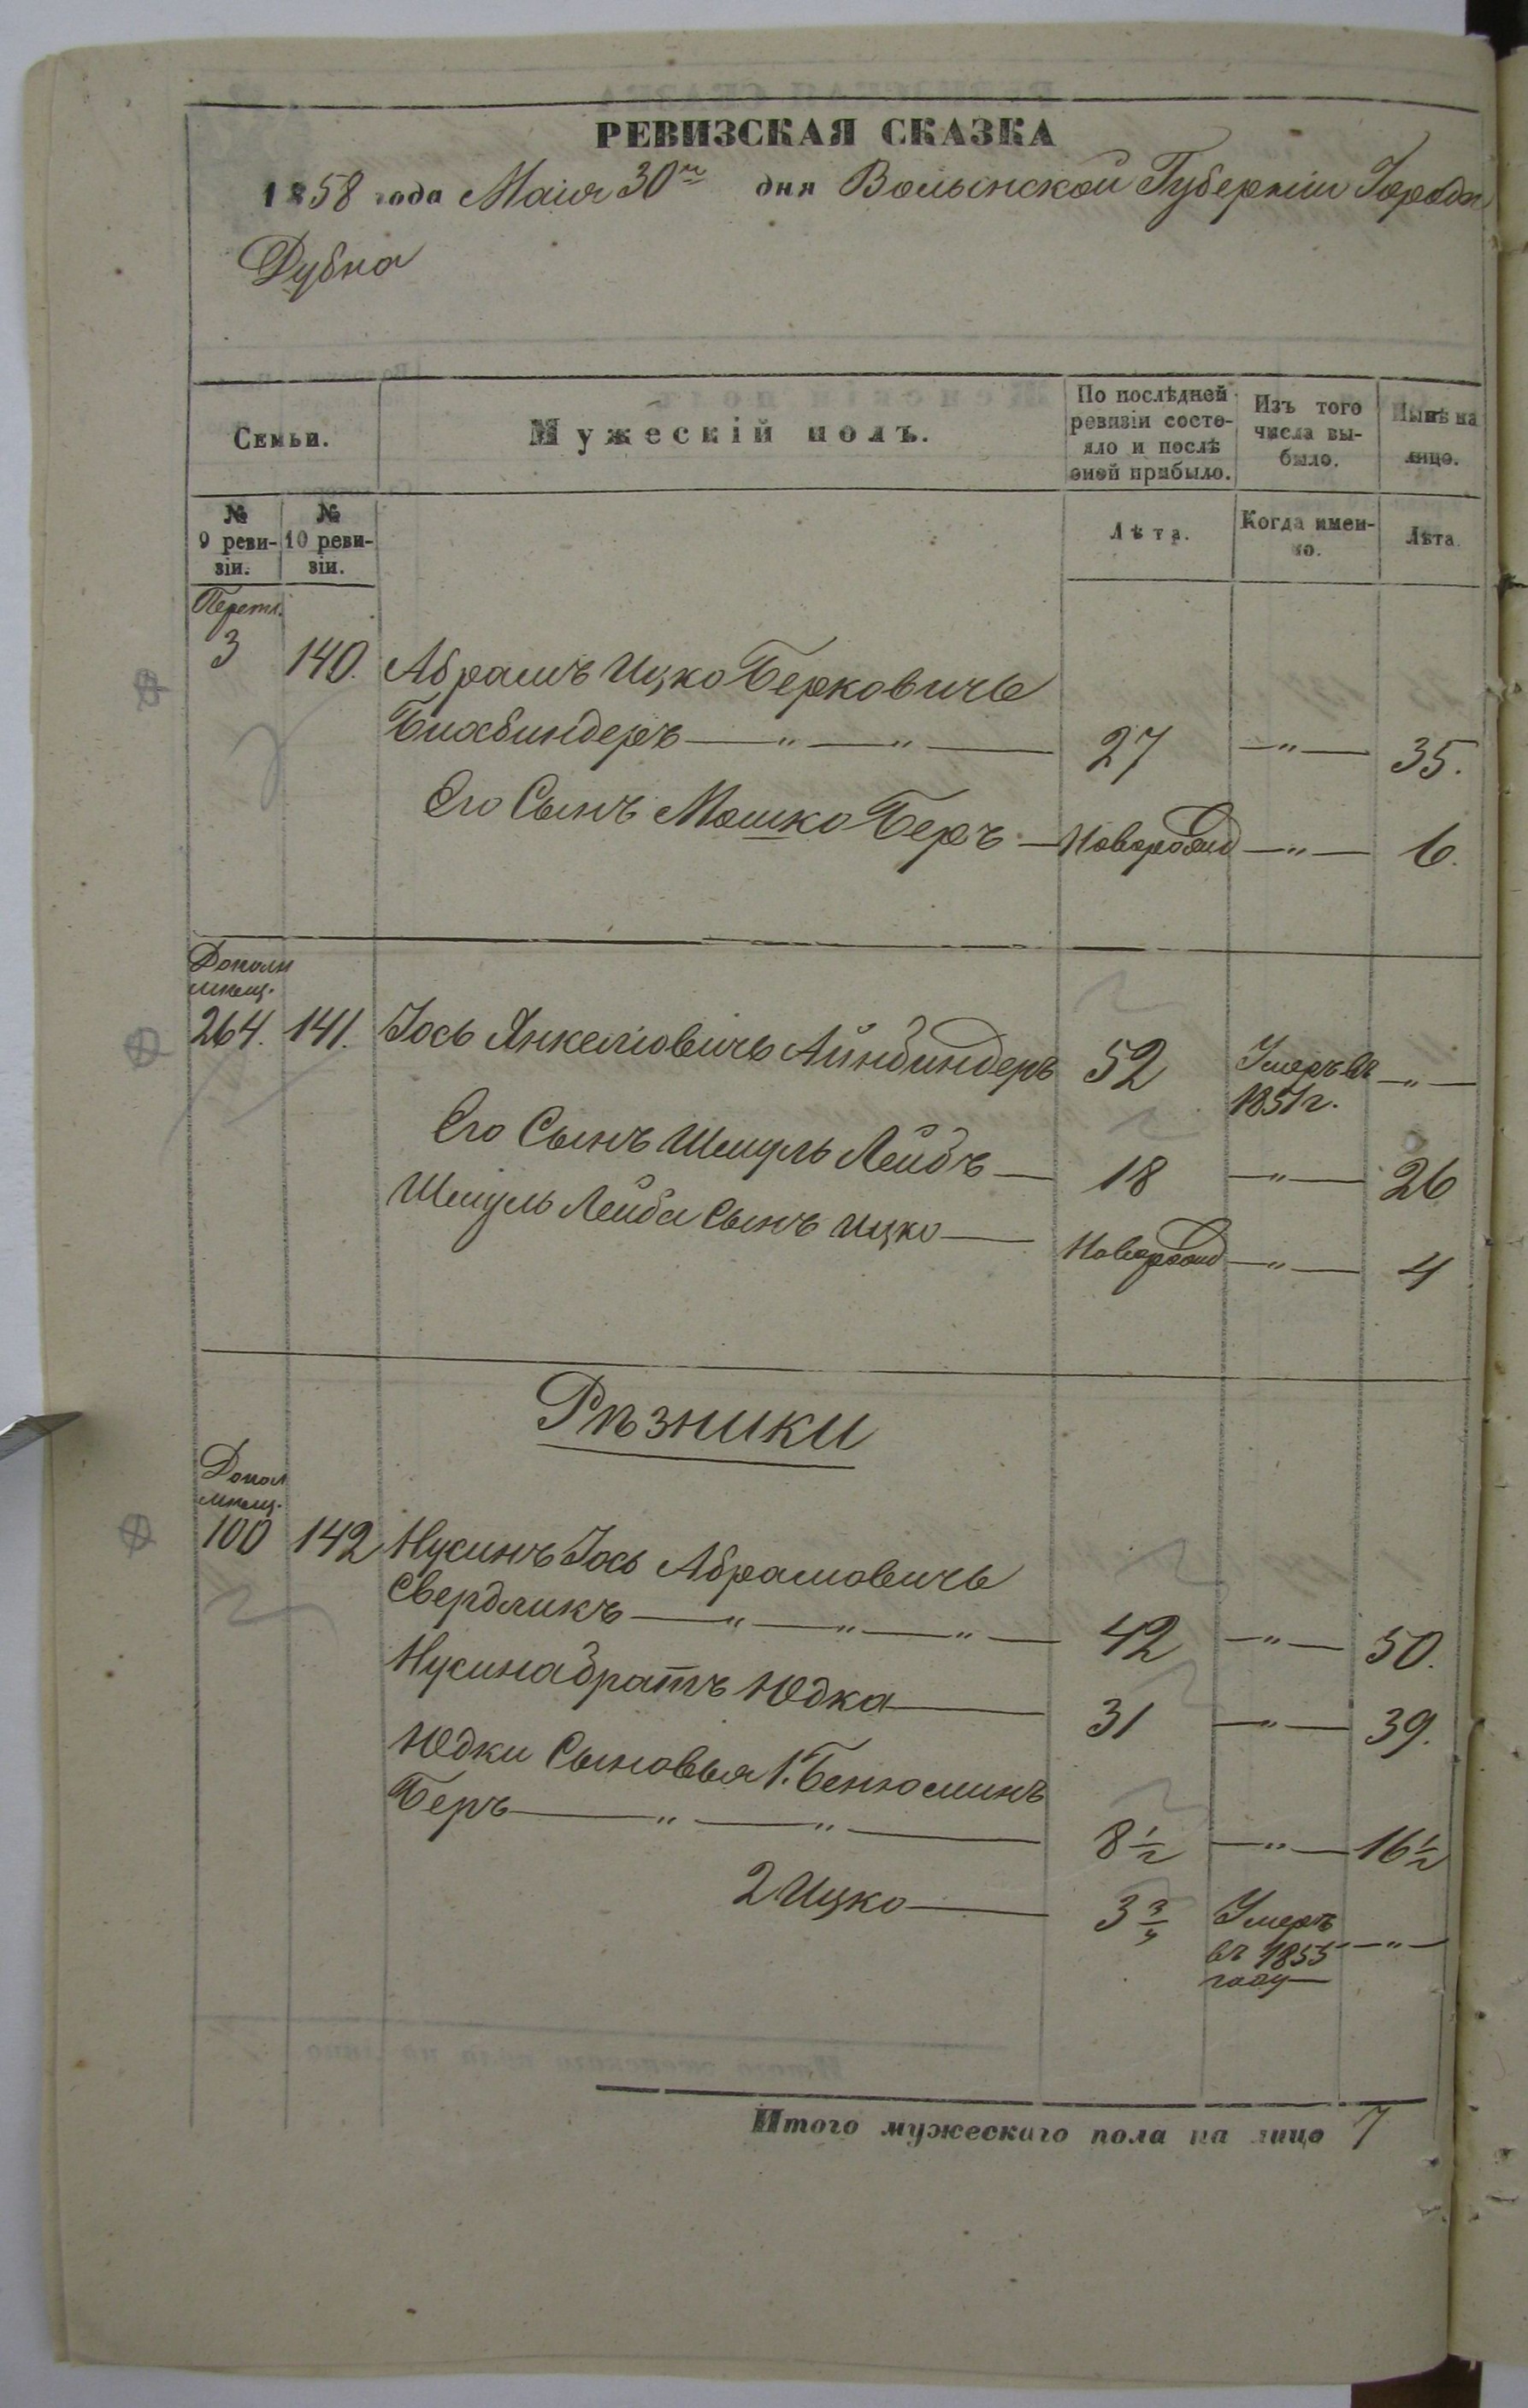 РЕВИЗСКАЯ СКАЗКА
1858 года Маія 30го дня Волынской Губерніи Города
Дубна
Семьи.
Мужескій полъ.
По послѣдней ревизіи состояло и послѣ оной прибыло.
Изъ того числа выбыло.
Нынѣ на лицо.
№ 9 ревизіи.
№ 10 ревизіи.
Лѣта.
Когда именно.
Лѣта
3 140. Абрамъ Ицко Берковичъ
Бихбиндеръ — „ — „ — 27 — „ — 35.
Его Сынъ Мошко Беръ — Новорожд — „ — 6.
Дополн
мѣщ.
264. 141. Іось Янкеліовичъ Айнбиндеръ 52 Умеръ въ 1851 г. — „ —
Его Сынъ Шмуль Лейбъ — 18 — „ — 26
Шмуль Лейба Сынъ Ицко — Новорожд — „ — 4
Рѣзники
Допол
мѣщ.
100 142 Нусинъ Іось Абрамовичъ
Свердликъ — „ — „ — „ — 42 — „ — 50.
Нусина братъ Юдка — 31 — „ — 39.
Юдки Сыновья 1. Бенюминъ
Беръ — „ — „ — 8½ — „ — 16½
2 Ицко — 3¾ Умеръ въ 1855 году — „ —
Итого мужескаго пола на лицо 7